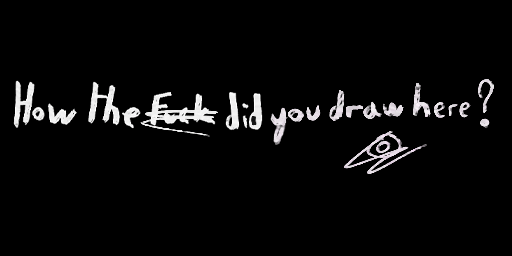 How the Fuck did you draw here?